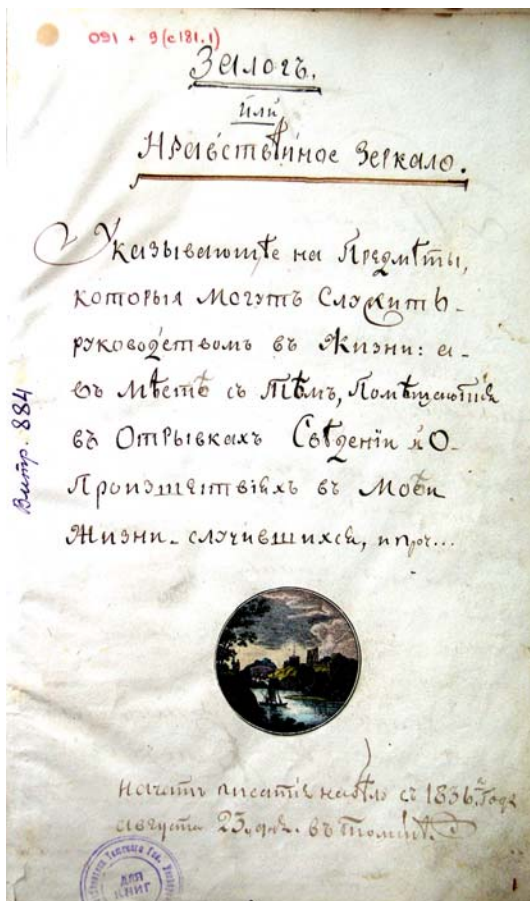 091 + 9(с181.1)
Залогъ.
или
Нравствѣнное Зеркало.
Указывающѣе на Предмѣты,
которыя могутъ Служить
руководствомъ въ Жизни: а-
въ Мѣстѣ съ Тѣмъ, Помѣщаются
въ Отрывкахъ Свѣденіи и О-
Произшествіяхъ въ Моей
Жизни случившихся, и проч...
Витр. 884
Начатъ писатся набѣло съ 1836. Года
августа 23. дня. въ Томскѣ.
ДЛЯ
КНИГ